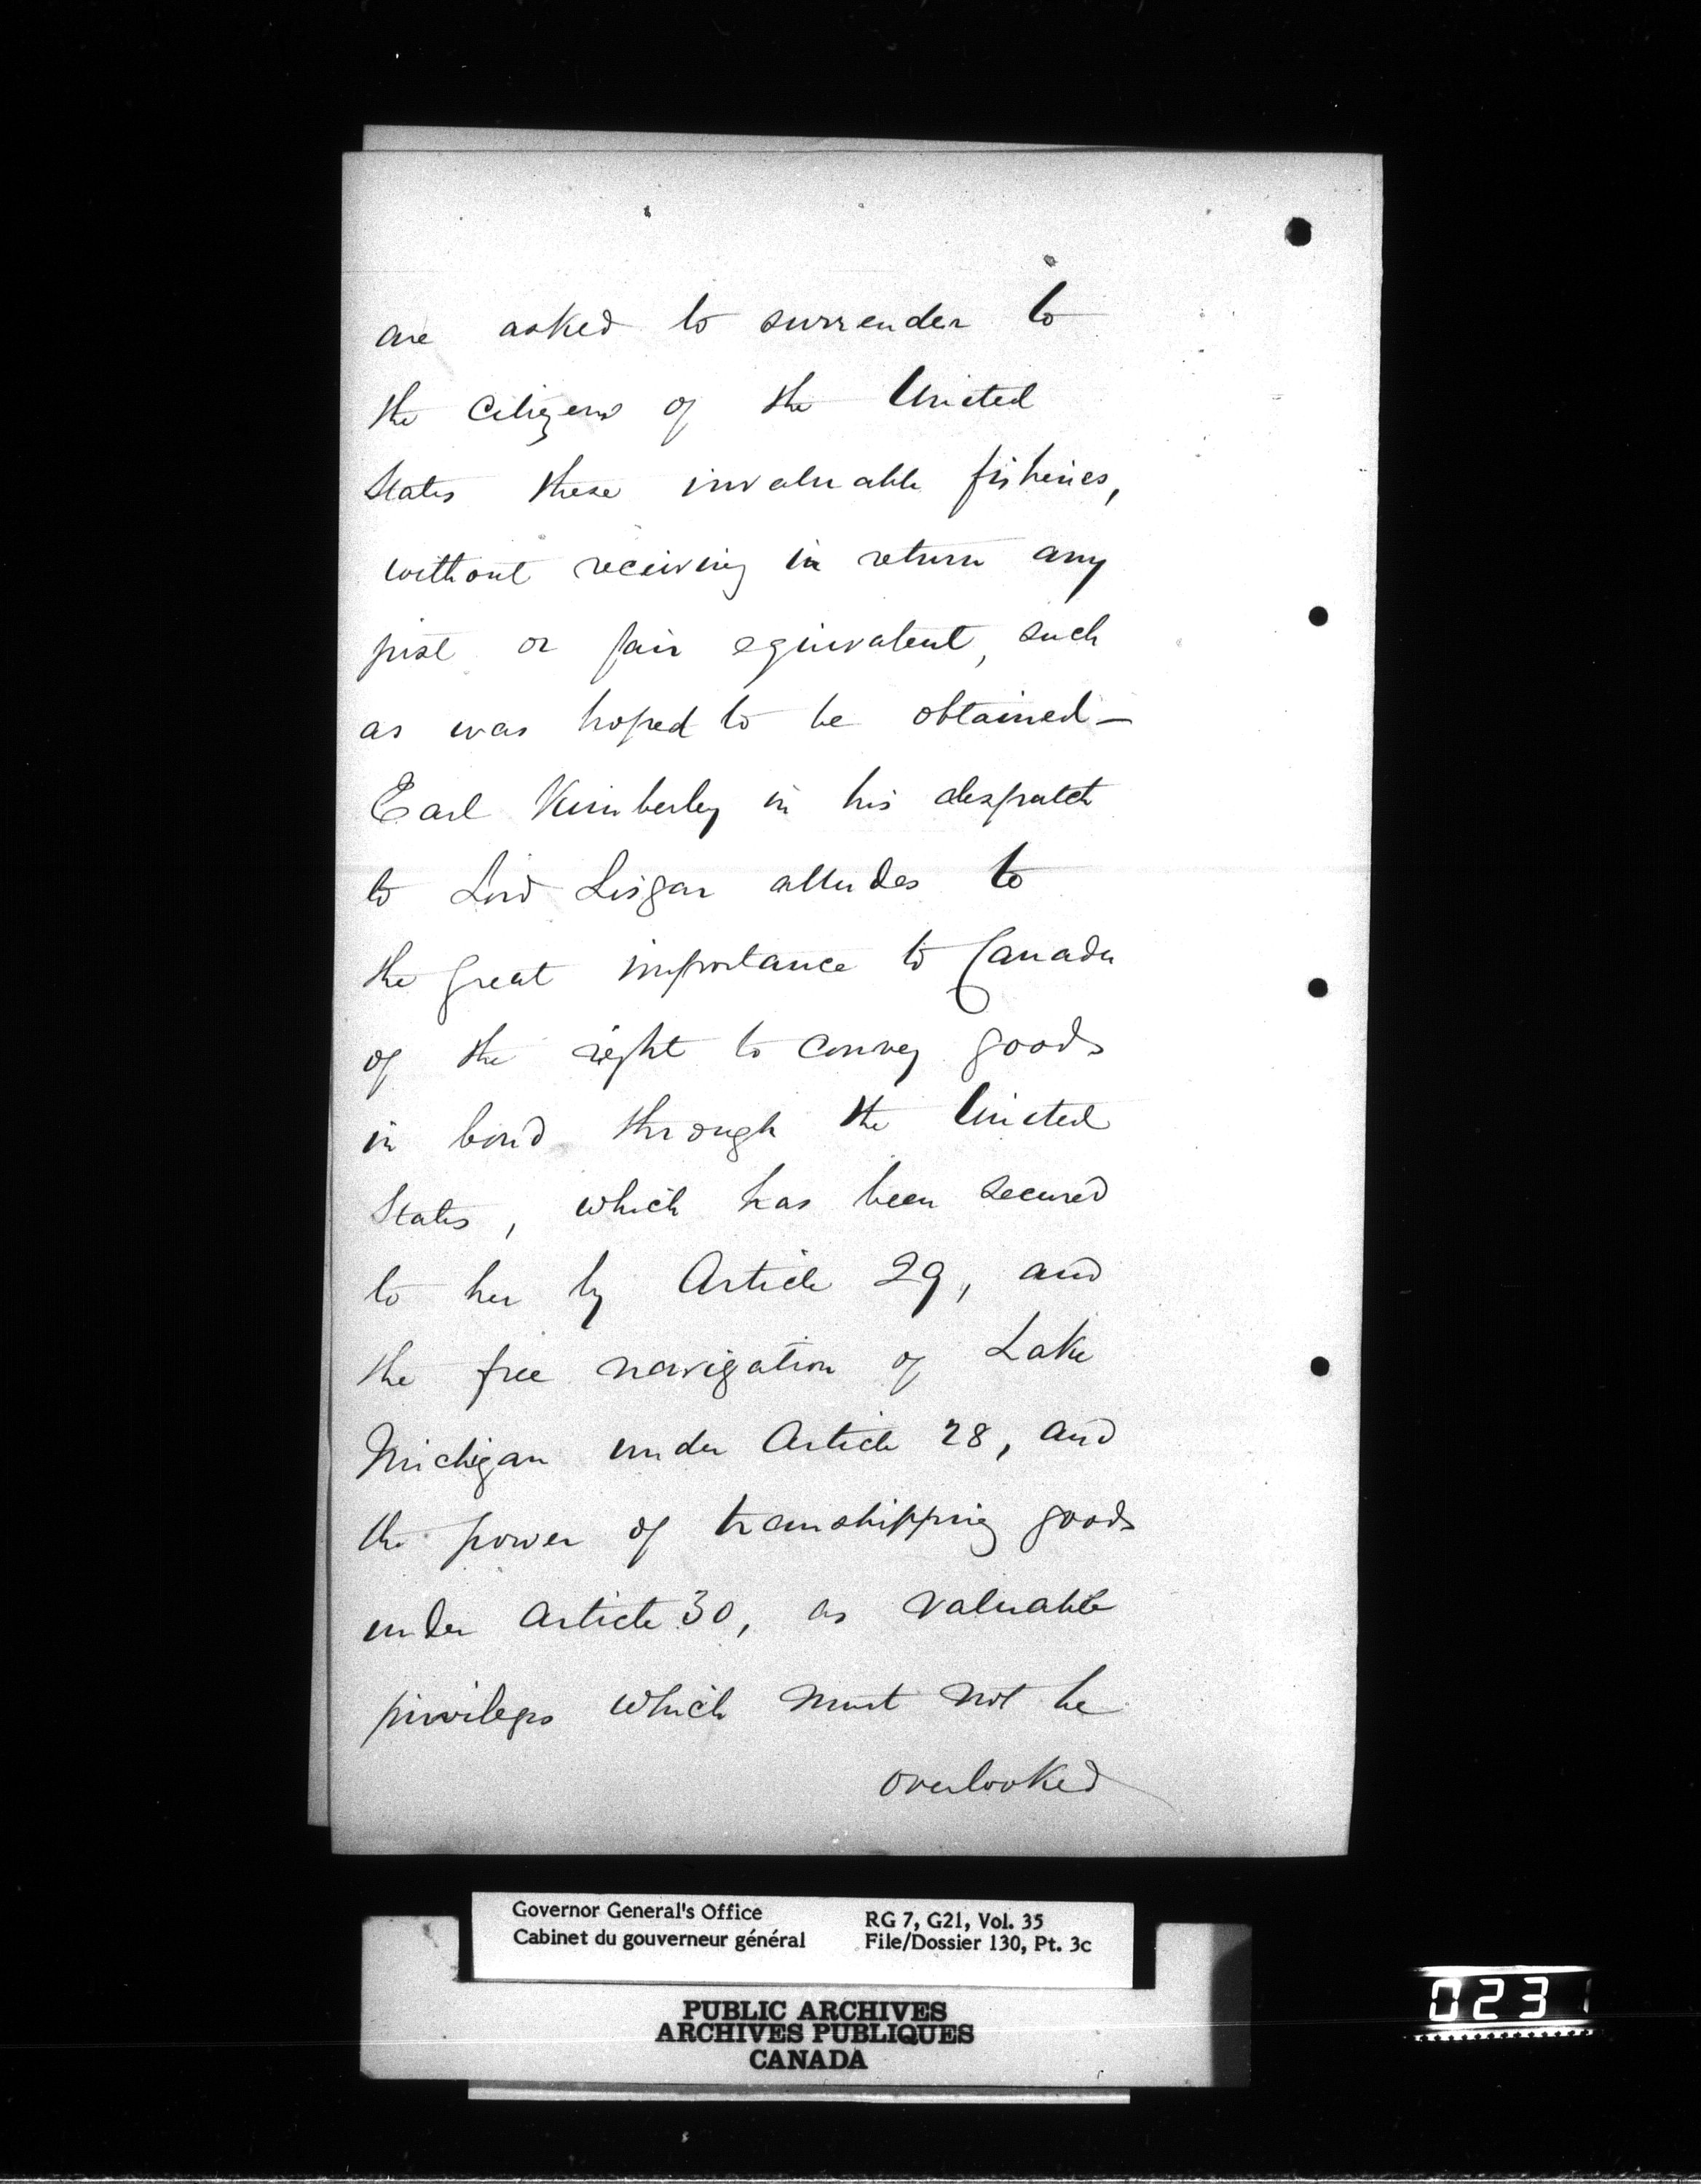 are asked to surrender to
the citizens of the United
States these invaluable fisheries,
without receiving in return any
just or fair equivalent, such
as was hoped to be obtained—
Earl Kimberley in his despatch
to Lord Lisgar alludes to
the great importance to Canada
of the right to convey goods
in bond through the United
States, which has been secured
to her by Article 29, and
the free navigation of Lake
Michigan under Article 28, and
the power of transhipping goods
under Article 30, as valuable
privileges which must not be
overlooked
Governor General's Office
Cabinet du gouverneur général
RG 7, G21, Vol. 35
File/Dossier 130, Pt. 3c
PUBLIC ARCHIVES
ARCHIVES PUBLIQUES
CANADA
023